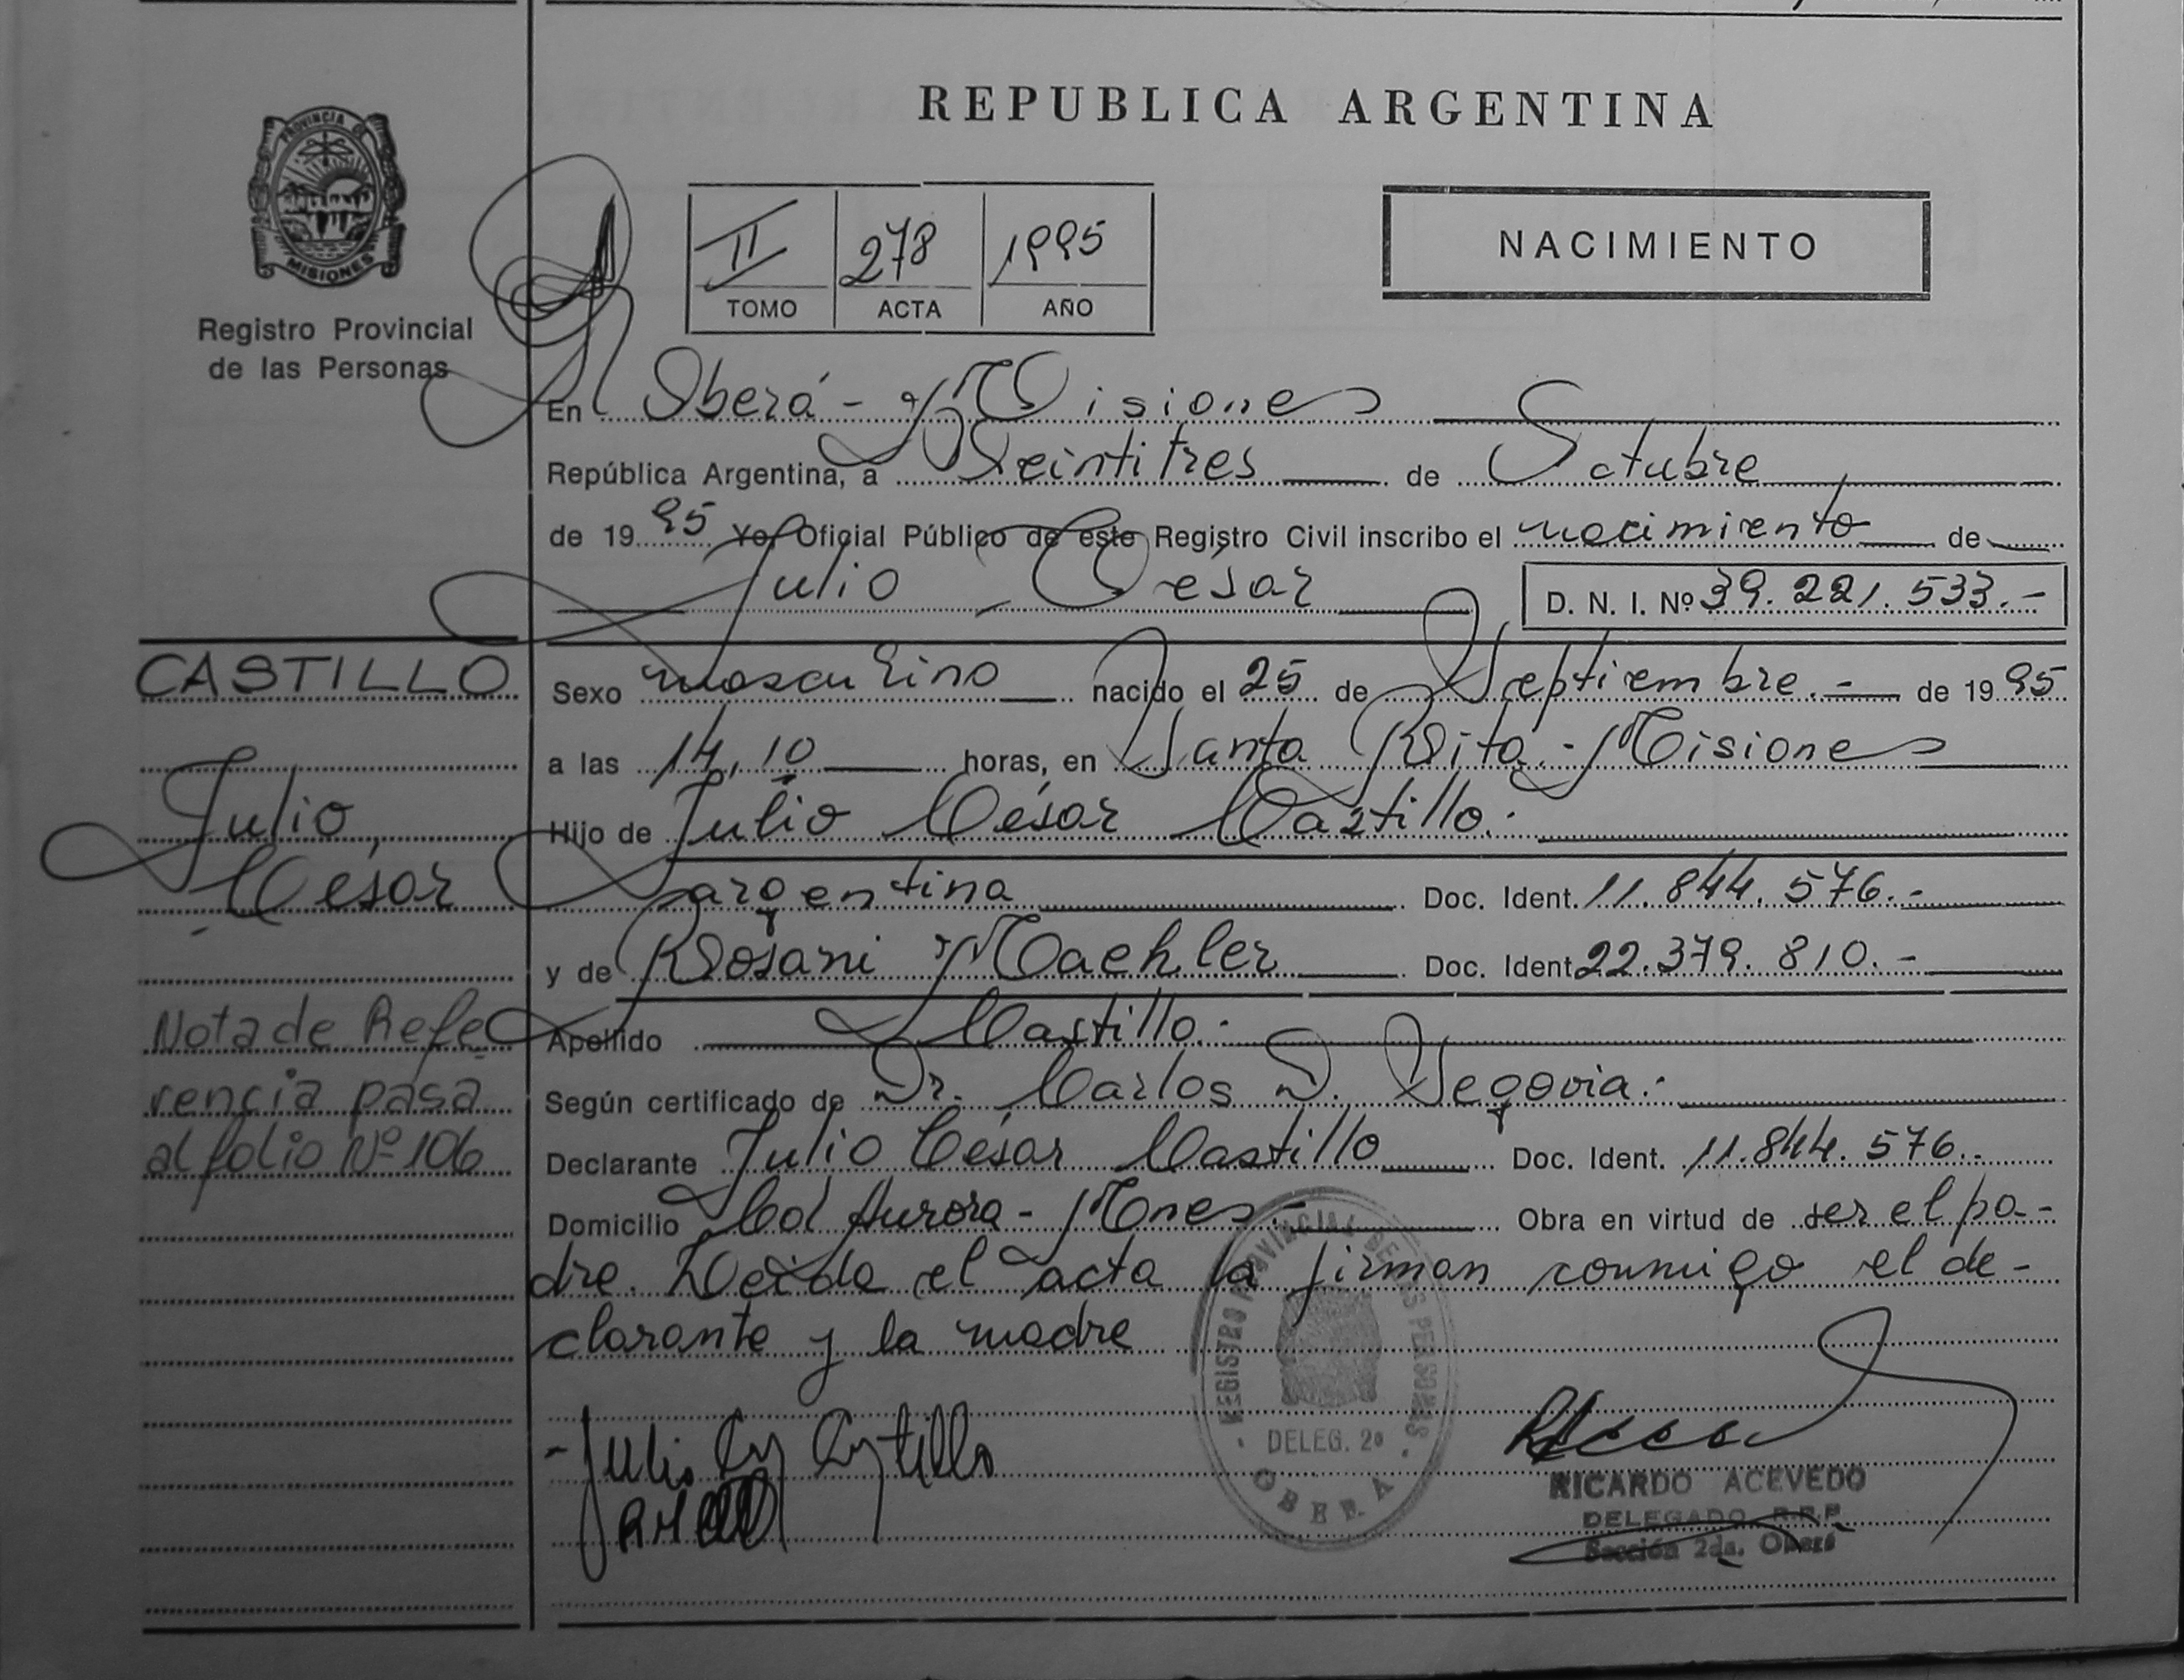 REPUBLICA ARGENTINA
PROVINCIA DE
MISIONES
Registro Provincial
de las Personas
II 278 1995
TOMO ACTA AÑO
NACIMIENTO
En Oberá - Misiones
República Argentina, a Veintitres de Octubre
de 1995 Yo, Oficial Público de este Registro Civil inscribo el nacimiento de
Julio César D. N. I. Nº 39.221.533.-
CASTILLO
Julio
César
Nota de Refe-
rencia pasa
al folio Nº 106
Sexo masculino nacido el 25 de Septiembre.- de 1995
a las 14,10 horas, en Santa Rita - Misiones
Hijo de Julio César Castillo.-
argentina Doc. Ident. 11.844.576.-
y de Rosani Maehler Doc. Ident. 22.379.810.-
Apellido Castillo.-
Según certificado de Dr. Carlos D. Segovia.-
Declarante Julio César Castillo Doc. Ident. 11.844.576.-
Domicilio Col Aurora - Mnes.- Obra en virtud de ser el pa-
dre. Leida el acta la firman conmigo el de-
clarante y la madre
Julio Castillo
REGISTRO PROVINCIAL DE LAS PERSONAS
DELEG. 2ª
OBERA
RICARDO ACEVEDO
DELEGADO R.R.P.
Sección 2da. Oberá